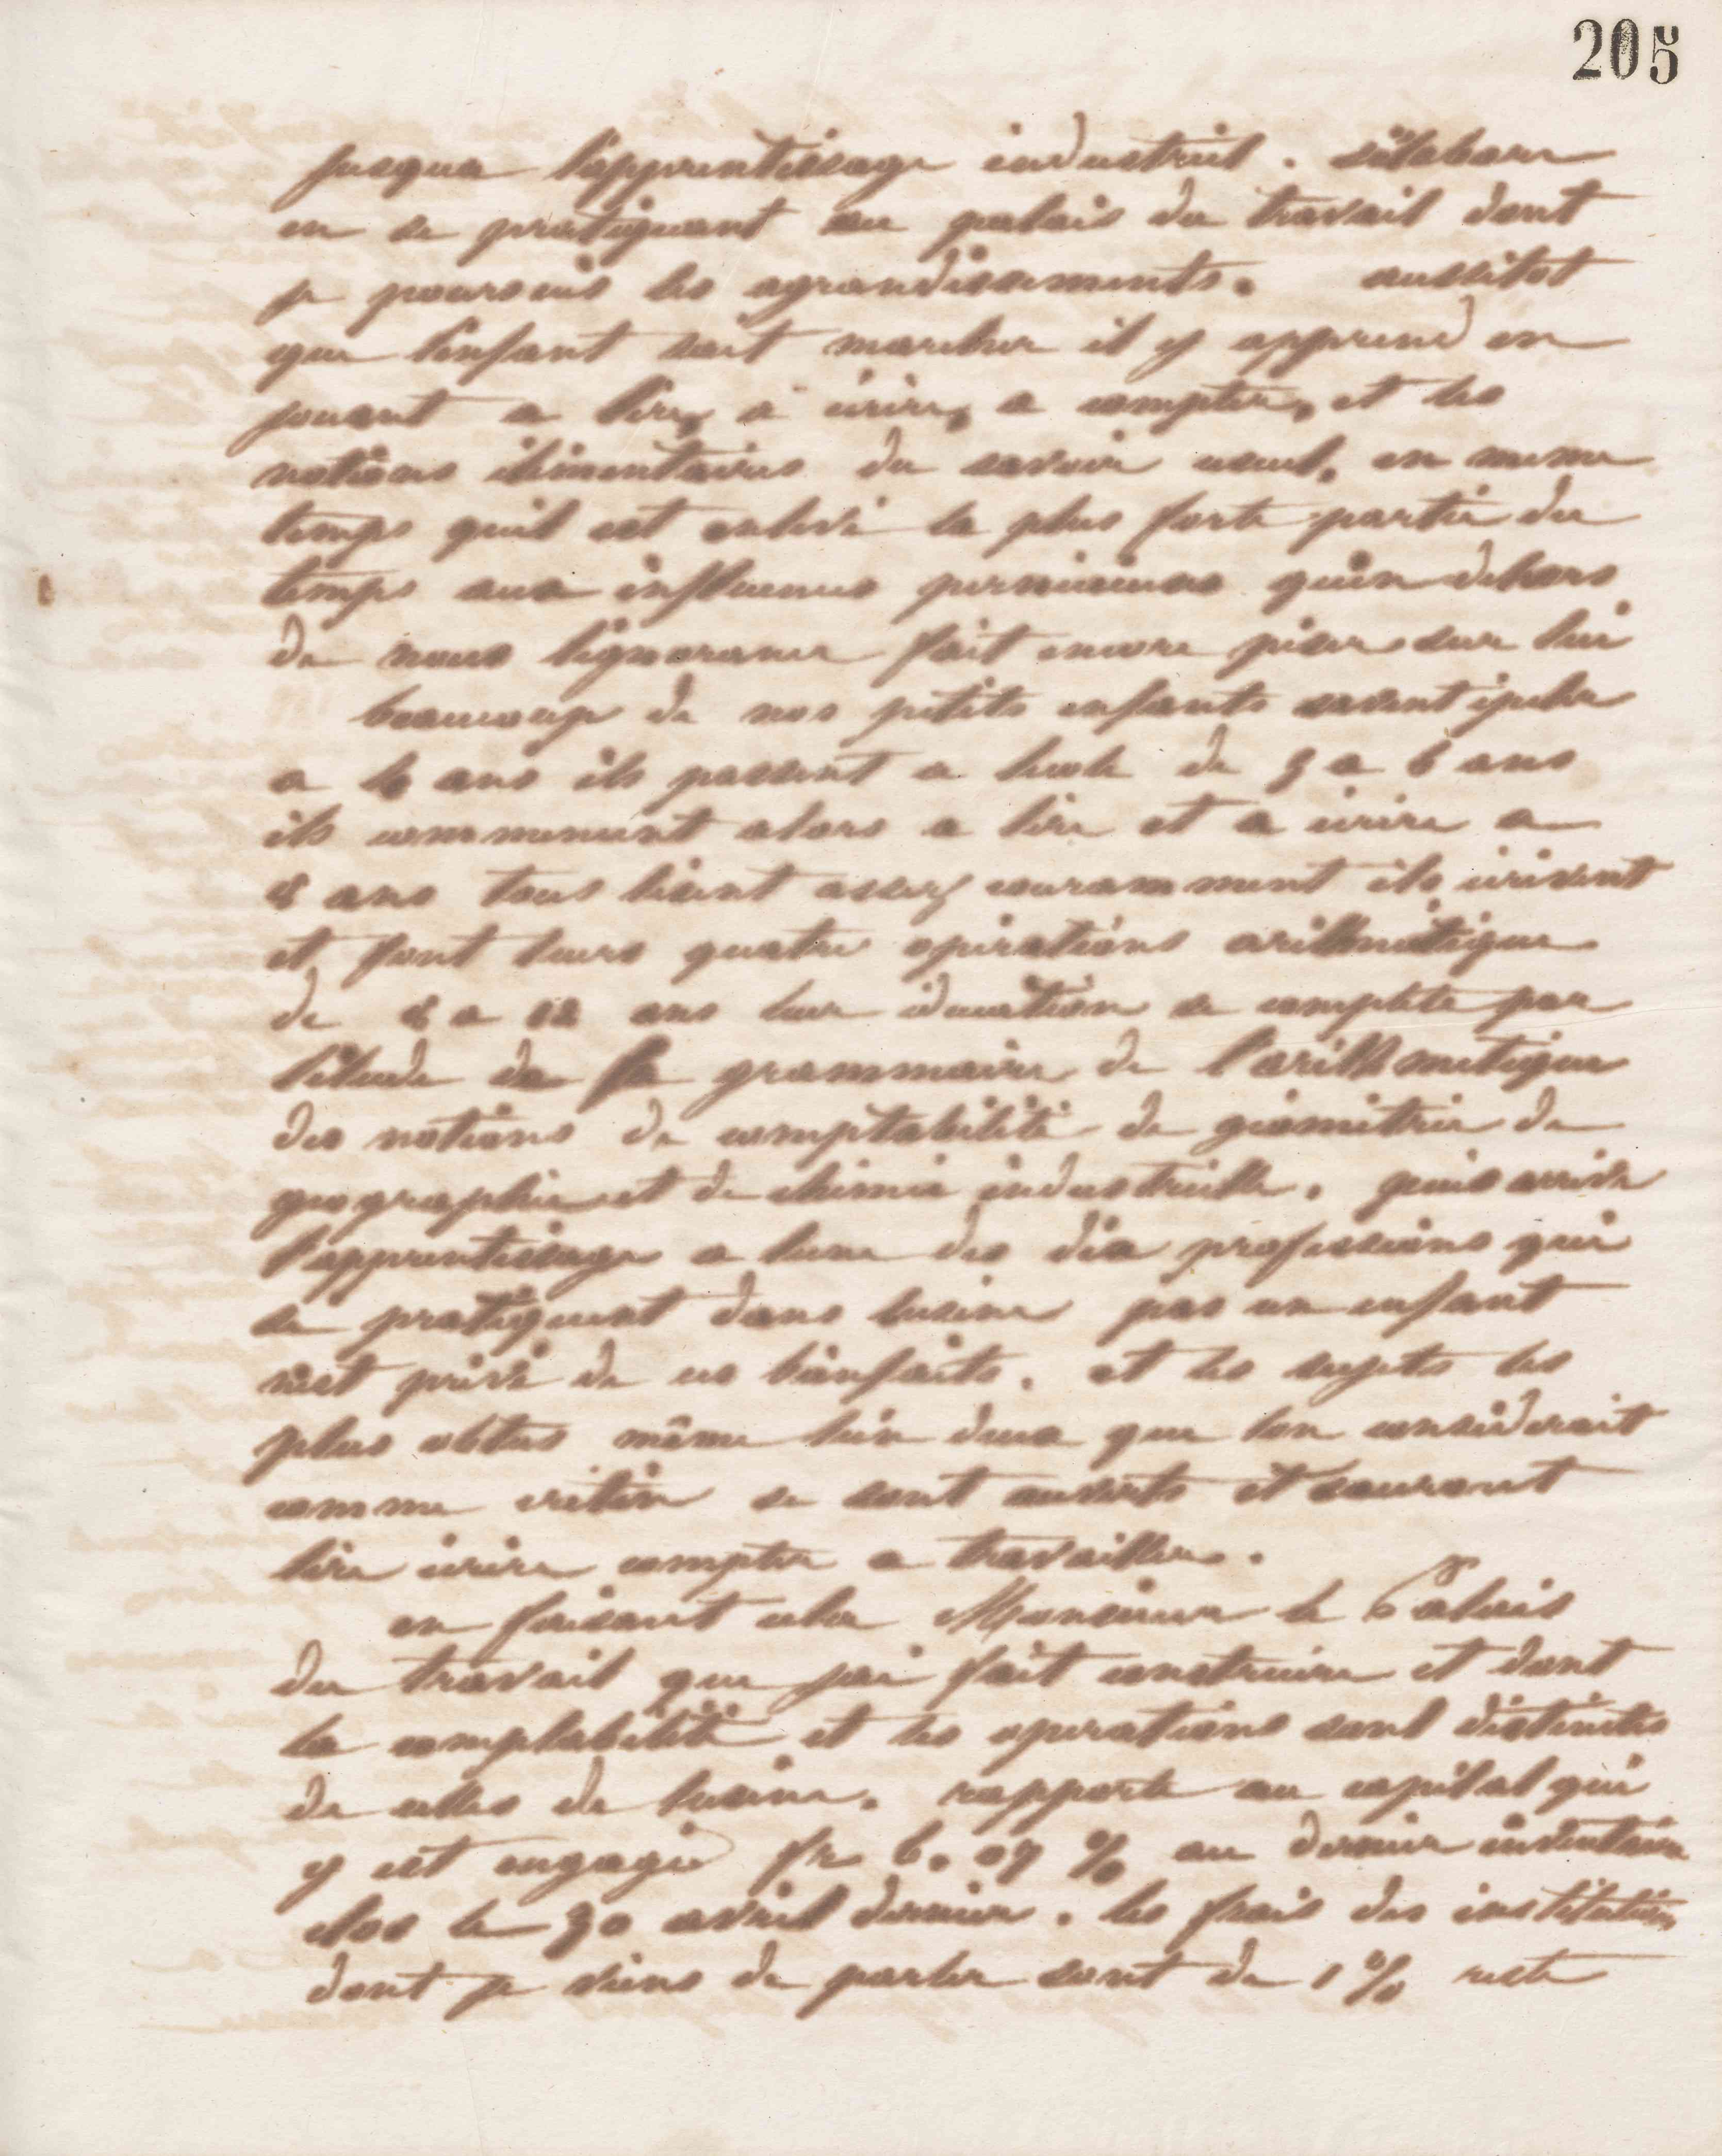 205
jusqua l'apprentissage industriel. sélabore
en se pratiquant au palais du travail dont
je poursuis les agrandissements. aussitot
que l'enfant sait marcher il y apprend en
jouant a lire, a écrire, a compter, et les
notions élémentaires du savoir usuel, en meme
temps quil est enlevé la plus forte partie du
temps aux influences pernicieuses quen dehors
de nous lignorance fait encore peser sur lui
beaucoup de nos petits enfants savent épeler
a 4 ans ils passent a lecole de 5 a 6 ans
ils commencent alors a lire et a écrire a
8 ans tous lisent assez courammment ils écrivent
et font leurs quatre opérations arithmétique
de 8 a 12 ans leur éducation se complète par
létude de la grammaire de l'arithmetique
des notions de comptabilité de géométrie de
geographie et de chimie industrielle. puis arrive
l'apprentissage a lune des dix professions qui
se pratiquent dans lusine pas un enfant
nest privé de ces bienfaits. et les sujets les
plus obtus même lun deux que lon considerait
comme crétin se sont ouverts et sauront
lire écrire compter a travailler.
en faisant cela Monsieur le Palais
du travail que jai fait construire et dont
la comptabilité et les operations sont distinctes
de celles de lusine. rapporte au capital qui
y est engagé fr 6.07 % au dernier inventaire
clos le 30 avril dernier. les frais des institutions
dont je viens de parler sont de 1 % reste